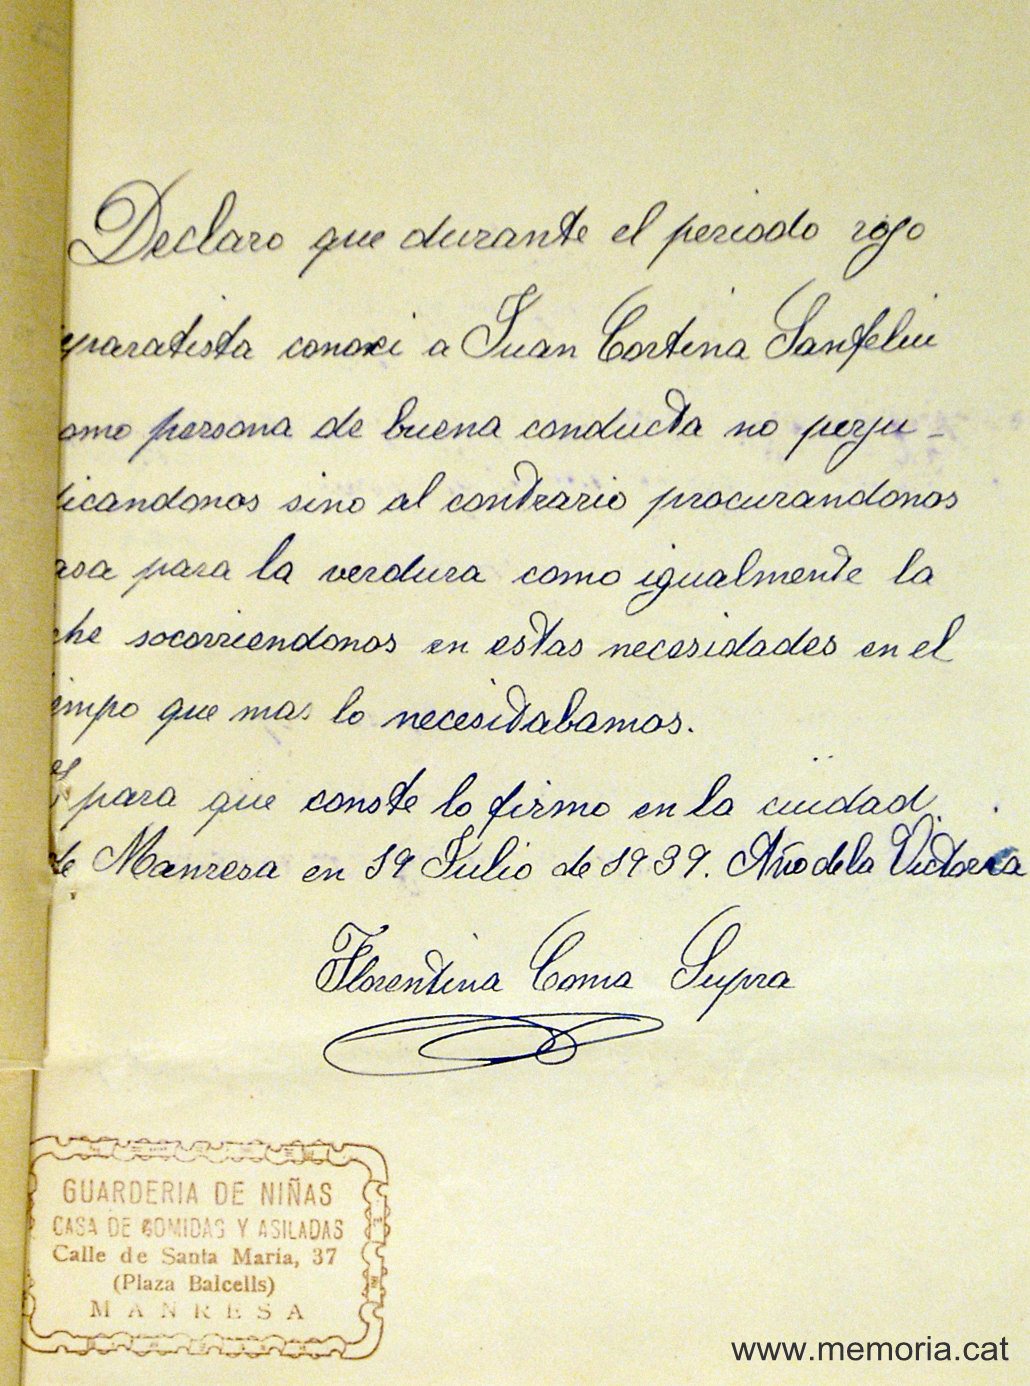 Declaro que durante el periodo rojo
paratista conoci a Juan Cortina Sanfeliu
omo persona de buena conducta no perju-
icandonos sino al contrario procurandonos
asa para la verdura como igualmente la
che socorriendonos en estas necesidades en el
empo que mas lo necesitabamos.
para que conste lo firmo en la ciudad
de Manresa en 19 Julio de 1939. Año de la Victoria
Florentina Coma Supra
GUARDERIA DE NIÑAS
CASA DE COMIDAS Y ASILADAS
Calle de Santa Maria, 37
(Plaza Balcells)
MANRESA
www.memoria.cat